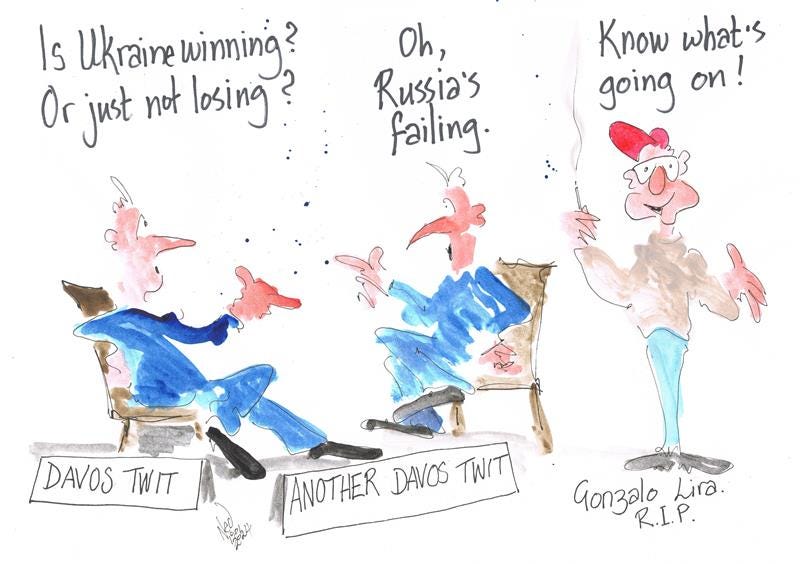 Is Ukraine winning?
Or just not losing?
Oh,
Russia's
failing.
Know what's
going on!
DAVOS TWIT
ANOTHER DAVOS TWIT
Gonzalo Lira.
R.I.P.